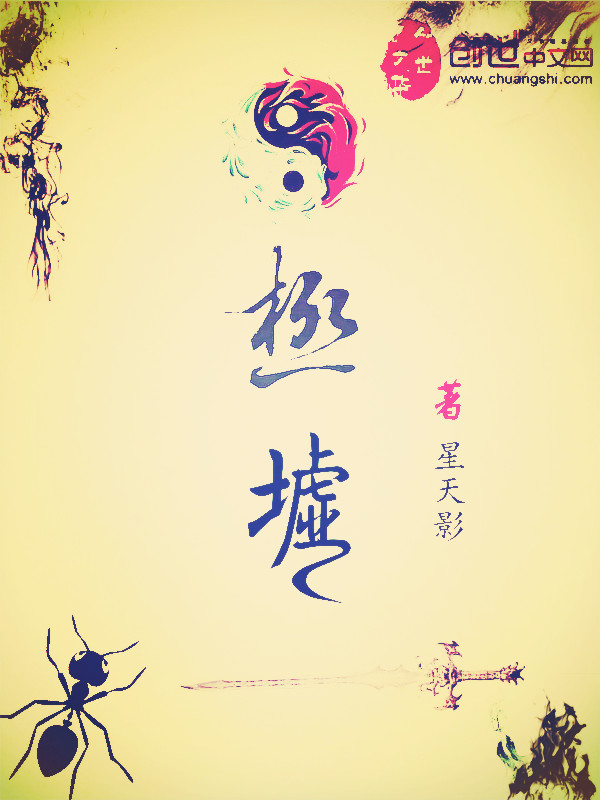 创世中文网
www.chuangshi.com
極
墟
著
星天影